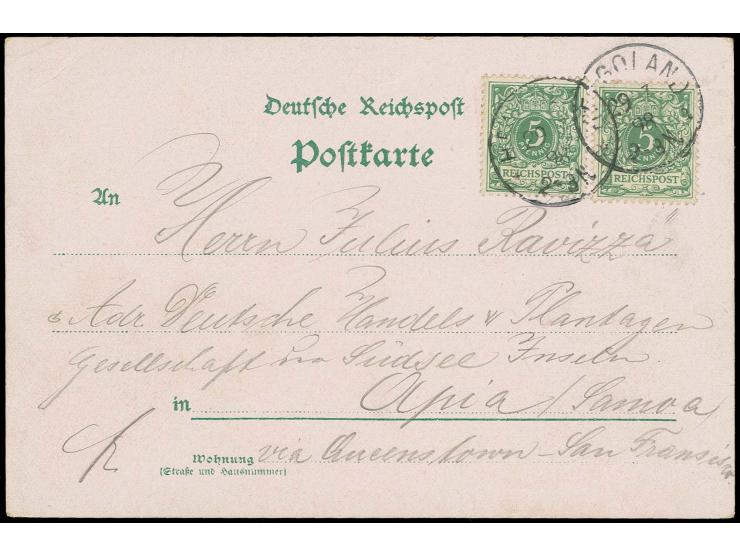 Deutsche Reichspost
Postkarte
5
REICHSPOST
5
REICHSPOST
HELGOLAND
2-3N
An
Herrn Julius Ravizza
Adr Deutsche Handels & Plantagen
Gesellschaft Südsee Inseln.
in Apia (Samoa)
Wohnung via Queenstown - San Francisco.
(Straße und Hausnummer)